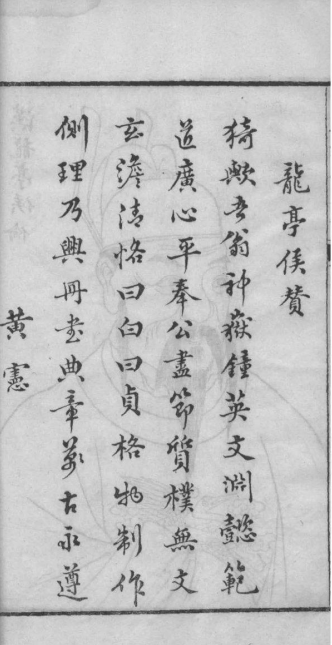 龍亭侯贊
猗歟吾翁神嶽鐘英文淵懿範
道廣心平奉公盡節質樸無文
玄澹清恪曰白曰貞格物制作
側理乃興冊書典章萬古永遵
黃憲